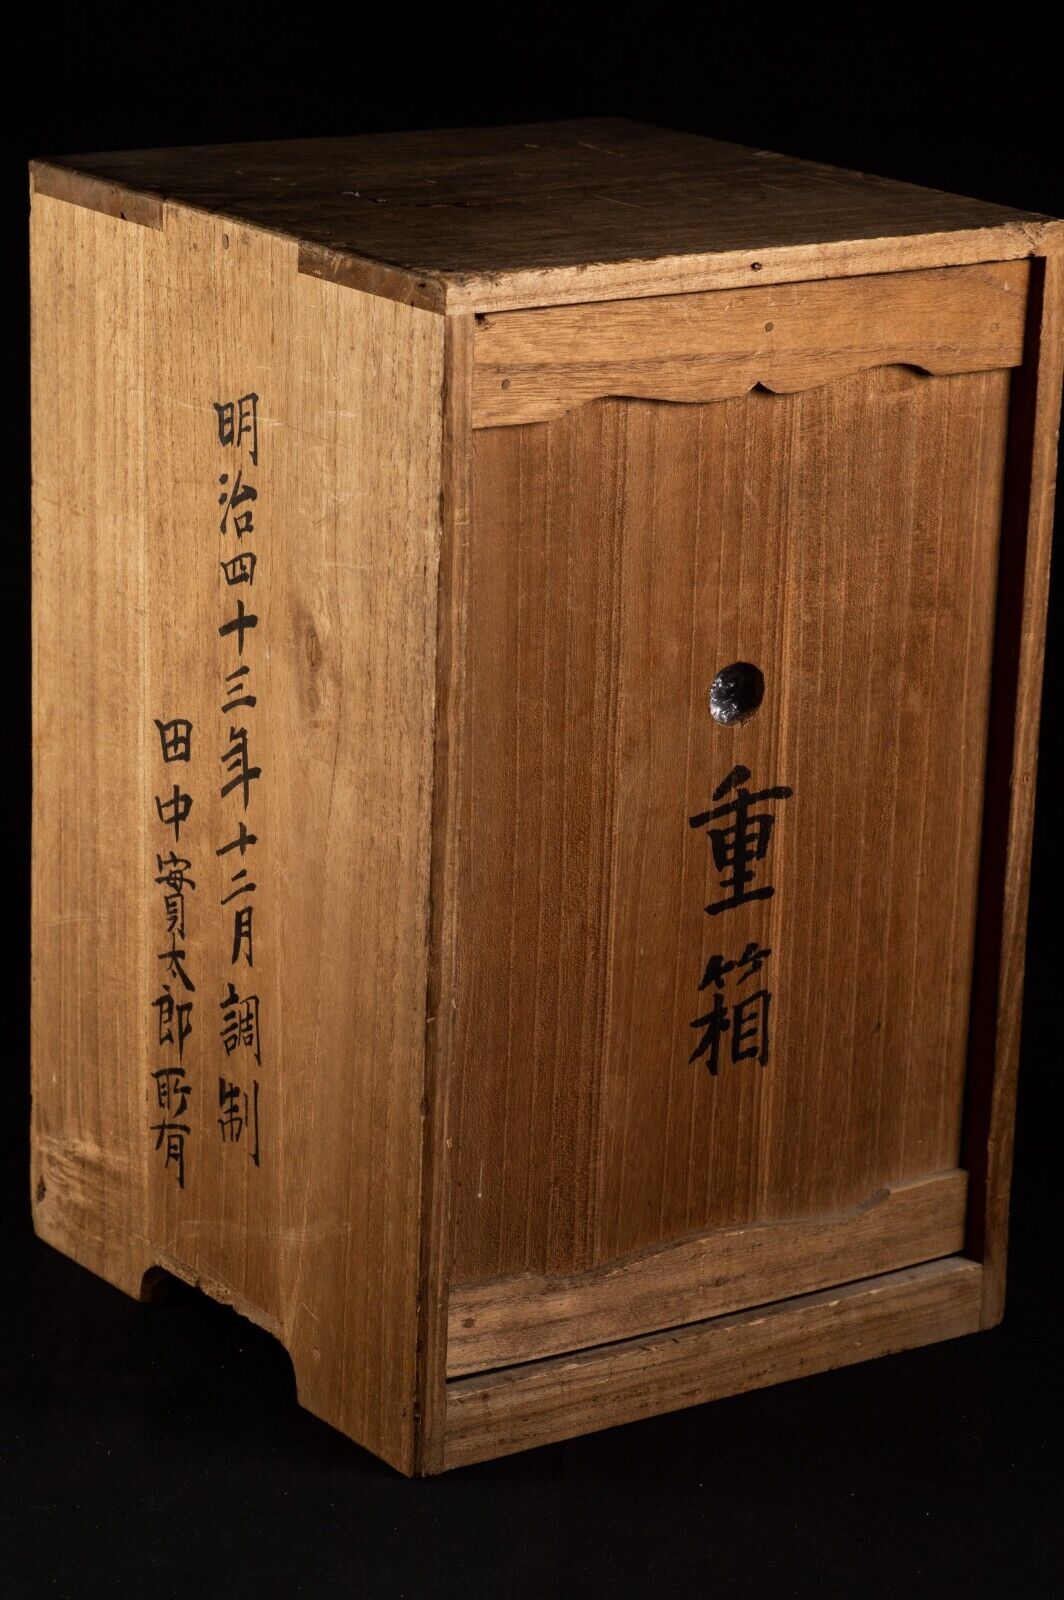 明治四十三年十二月調制
田中實太郎所有
重箱